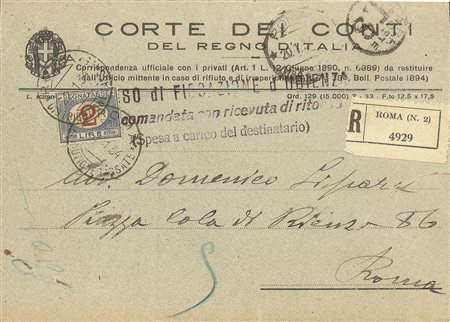 CORTE DEI CONTI
DEL REGNO D'ITALIA
Corrispondenza ufficiale con i privati (Art. 1 L. 12 Giugno 1890, n. 6889) da restituire
all'Ufficio mittente in caso di rifiuto e di irreperibilità Boll. Postale 1894)
Ord. 129 (15.000) 33 - F.to 12.5 x 17.5
SEGNATASSE
2
LIRE
di FISSAZIONE d'UDIENZA
comandata con ricevuta di rito
(Spesa a carico del destinatario)
R
ROMA (N. 2)
4929
Avv. Domenico Lipari
Piazza Cola di Rienzo 86
Roma